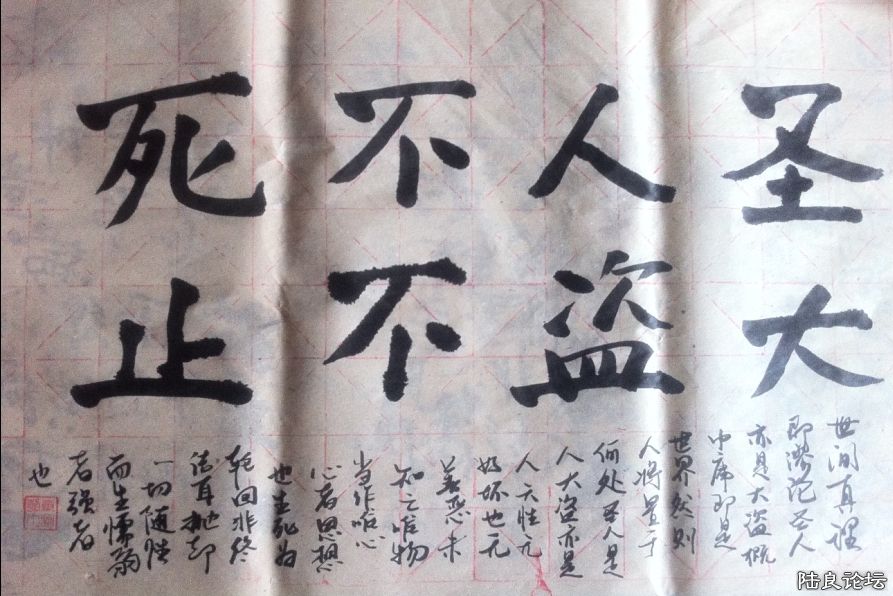 圣人不死
大盗不止
世间真理
即谬论圣人
亦是大盗概
中庸即是
世界然则
人将置于
何处圣人是
人大盗亦是
人性无
好坏也无
善恶未
知之唯物
当作唯心
心者思想
也生死为
轮回非终
结耳抛却
一切随性
而生懦弱
者强者
也
陆良论坛